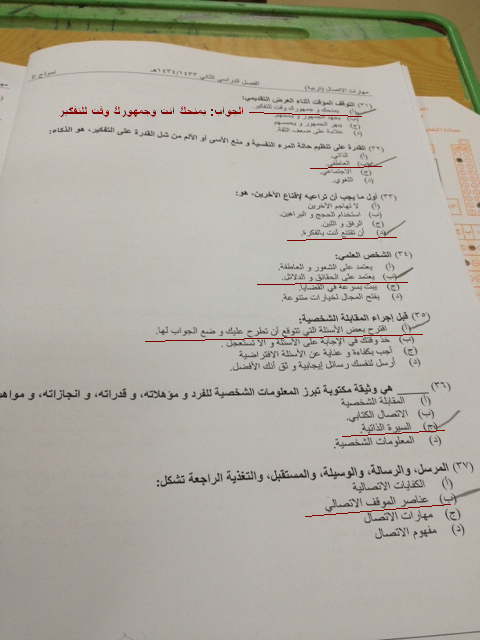 مهارات الاتصال (تربية) الفصل الدراسي الثاني ١٤٣٤/١٤٣٣هـ نموذج E
(٣١) التوقف المؤقت أثناء العرض التقديمي:
أ) يمنحك و جمهورك وقت للتفكير.
الجواب: يمنحك انت وجمهورك وقت للتفكير
ب) يجهد الجمهور و يحمسهم
ج) يبهر الجمهور و يحمسهم
د) علامة على ضعف الثقة.
(٣٢) القدرة على تنظيم حالة المرء النفسية و منع الأسى أو الألم من شل القدرة على التفكير، هو الذكاء:
أ) الذاتي.
ب) العاطفي.
ج) الاجتماعي.
د) اللغوي.
(٣٣) أول ما يجب أن تراعيه لإقناع الآخرين، هو:
أ) لا تهاجم الآخرين
ب) استخدام الحجج و البراهين.
ج) الرفق و اللين.
د) أن تقتنع أنت بالفكرة.
(٣٤) الشخص العلمي:
أ) يعتمد على الشعور و العاطفة.
ب) يعتمد على الحقائق و الدلائل.
ج) يبت بسرعة في القضايا.
د) يفتح المجال لخيارات متنوعة.
(٣٥) قبل إجراء المقابلة الشخصية:
أ) اقترح بعض الأسئلة التي تتوقع أن تطرح عليك و ضع الجواب لها.
ب) خذ وقتك في الإجابة على الأسئلة و لا تستعجل.
ج) أجب بكفاءة و عناية عن الأسئلة الافتراضية
د) أرسل لنفسك رسائل إيجابية و ثق أنك الأفضل.
(٣٦) ______ هي وثيقة مكتوبة تبرز المعلومات الشخصية للفرد و مؤهلاته، و قدراته، و انجازاته، و مواه
أ) المقابلة الشخصية
ب) الاتصال الكتابي.
ج) السيرة الذاتية.
د) المعلومات الشخصية.
(٣٧) المرسل، والرسالة، والوسيلة، والمستقبل، والتغذية الراجعة تشكل:
أ) الكفايات الاتصالية
ب) عناصر الموقف الاتصالي
ج) مهارات الاتصال
د) مفهوم الاتصال